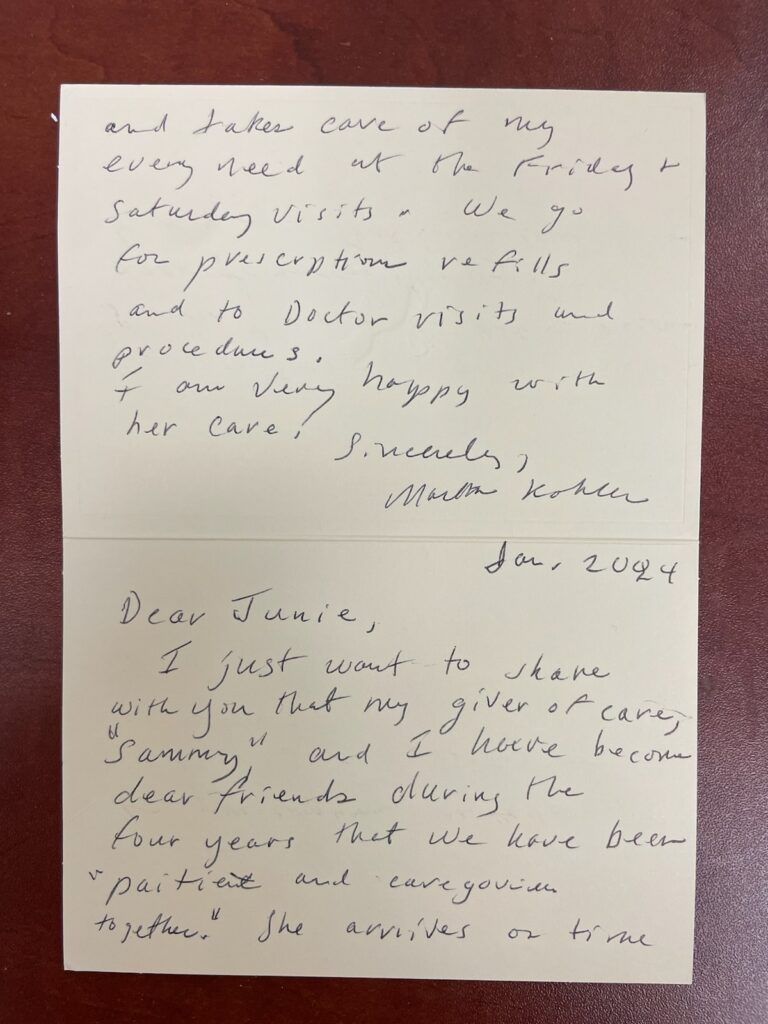 Jan. 2024
Dear Junie,
I just want to share
with you that my giver of care,
"Sammy," and I have become
dear friends during the
four years that we have been
"paitient and
together." She arrives on time
and takes care of my
every need at the Friday +
Saturday visits. We go
for prescrption refills
and to Doctor visits and
procedures.
I am very happy with
her care!
Sincerely,
Martha Kohler